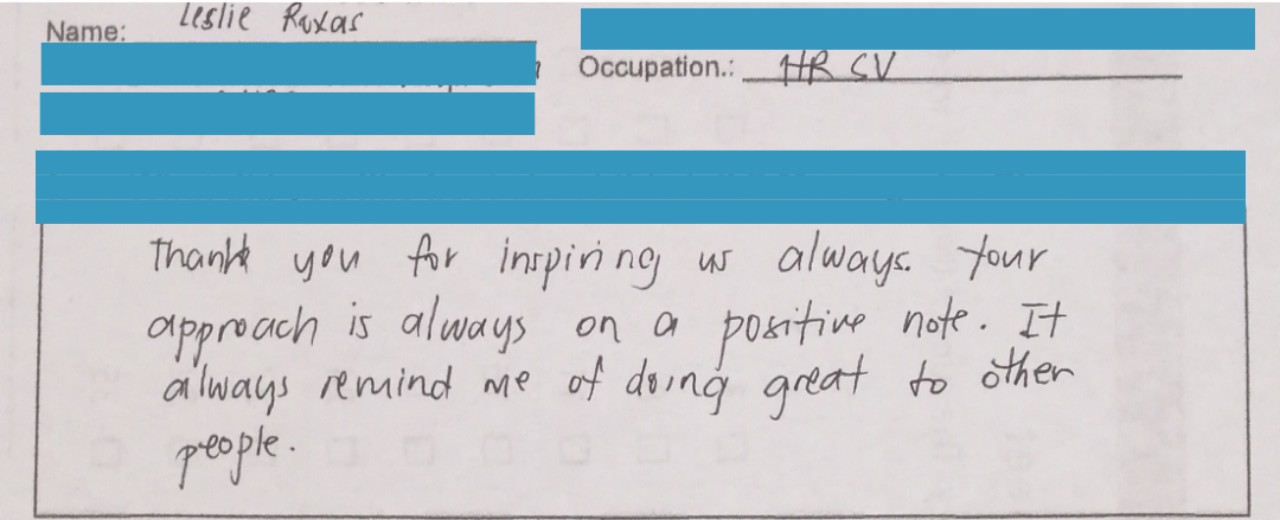 Name: Leslie Roxas
Occupation.: HR SV
Thank you for inspiring us always. Your
approach is always on a positive note. It
always remind me of doing great to other
people.